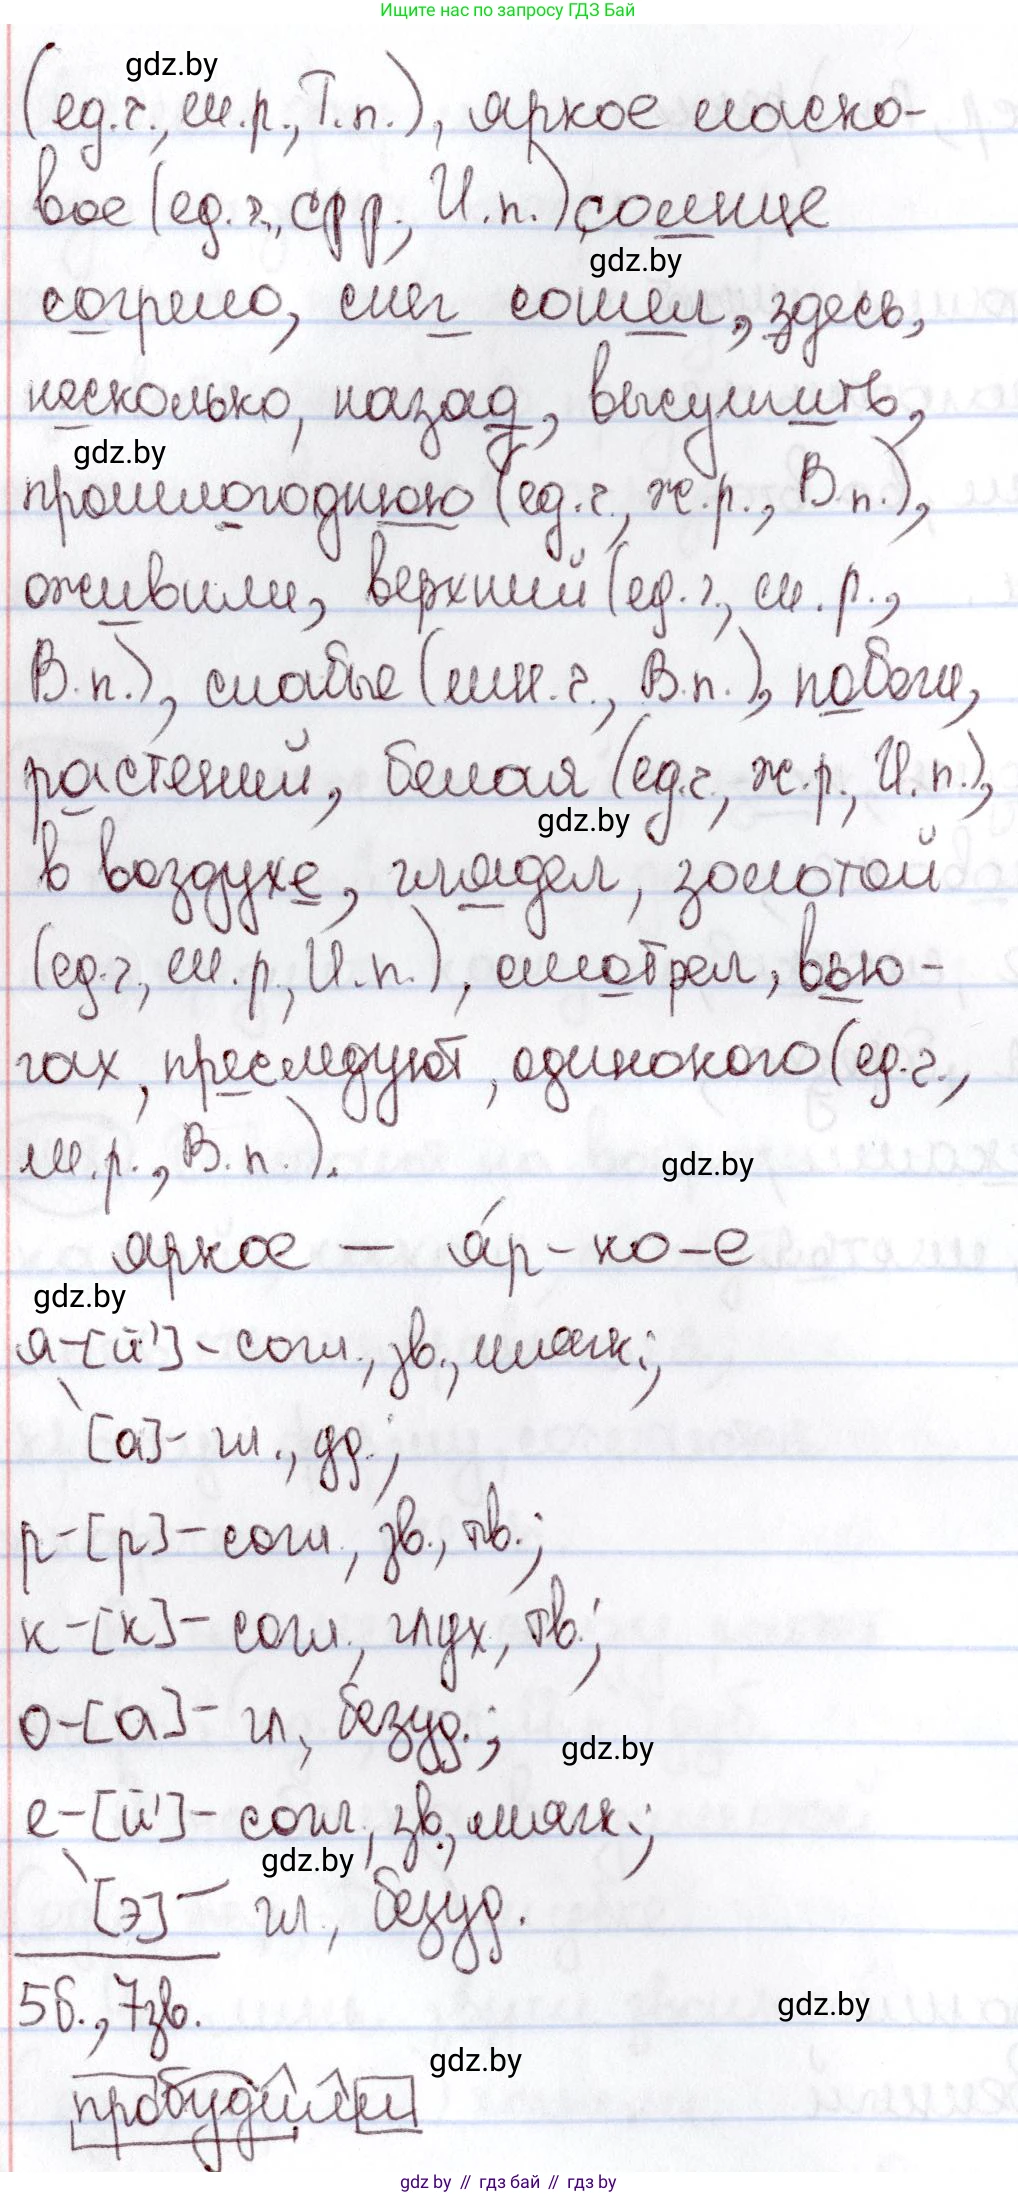 Ищите нас по запросу ГДЗ Бай
gdz.by
(ед.ч., м.р., Т.п.), яркое ласко-
вое (ед.ч., ср.р., И.п.) солнце
gdz.by
согрело, снег сошел, здесь,
несколько, назад, высушить,
gdz.by
прошлогоднюю (ед.ч., ж.р., В.п.),
оживили, верхний (ед.ч., м.р.,
В.п.), слабые (мн.ч., В.п.), побеги,
растений, белая (ед.ч., ж.р., И.п.),
gdz.by
в воздухе, глядел, золотой
(ед.ч., м.р., И.п.), смотрел, вью-
гах, преследуют, одинокого (ед.ч.,
м.р., В.п.).
gdz.by
яркое — я́р-ко-е
gdz.by
я-[й']-согл., зв., мягк.;
[а]-гл., уд.;
р-[р]-согл., зв., тв.;
к-[к]-согл., глух., тв.;
о-[а]-гл., безуд.;
gdz.by
е-[й']-согл., зв., мягк.;
gdz.by
[э]-гл., безуд.
5б., 7зв.
gdz.by
gdz.by
пробудили
gdz.by // гдз бай // гдз by